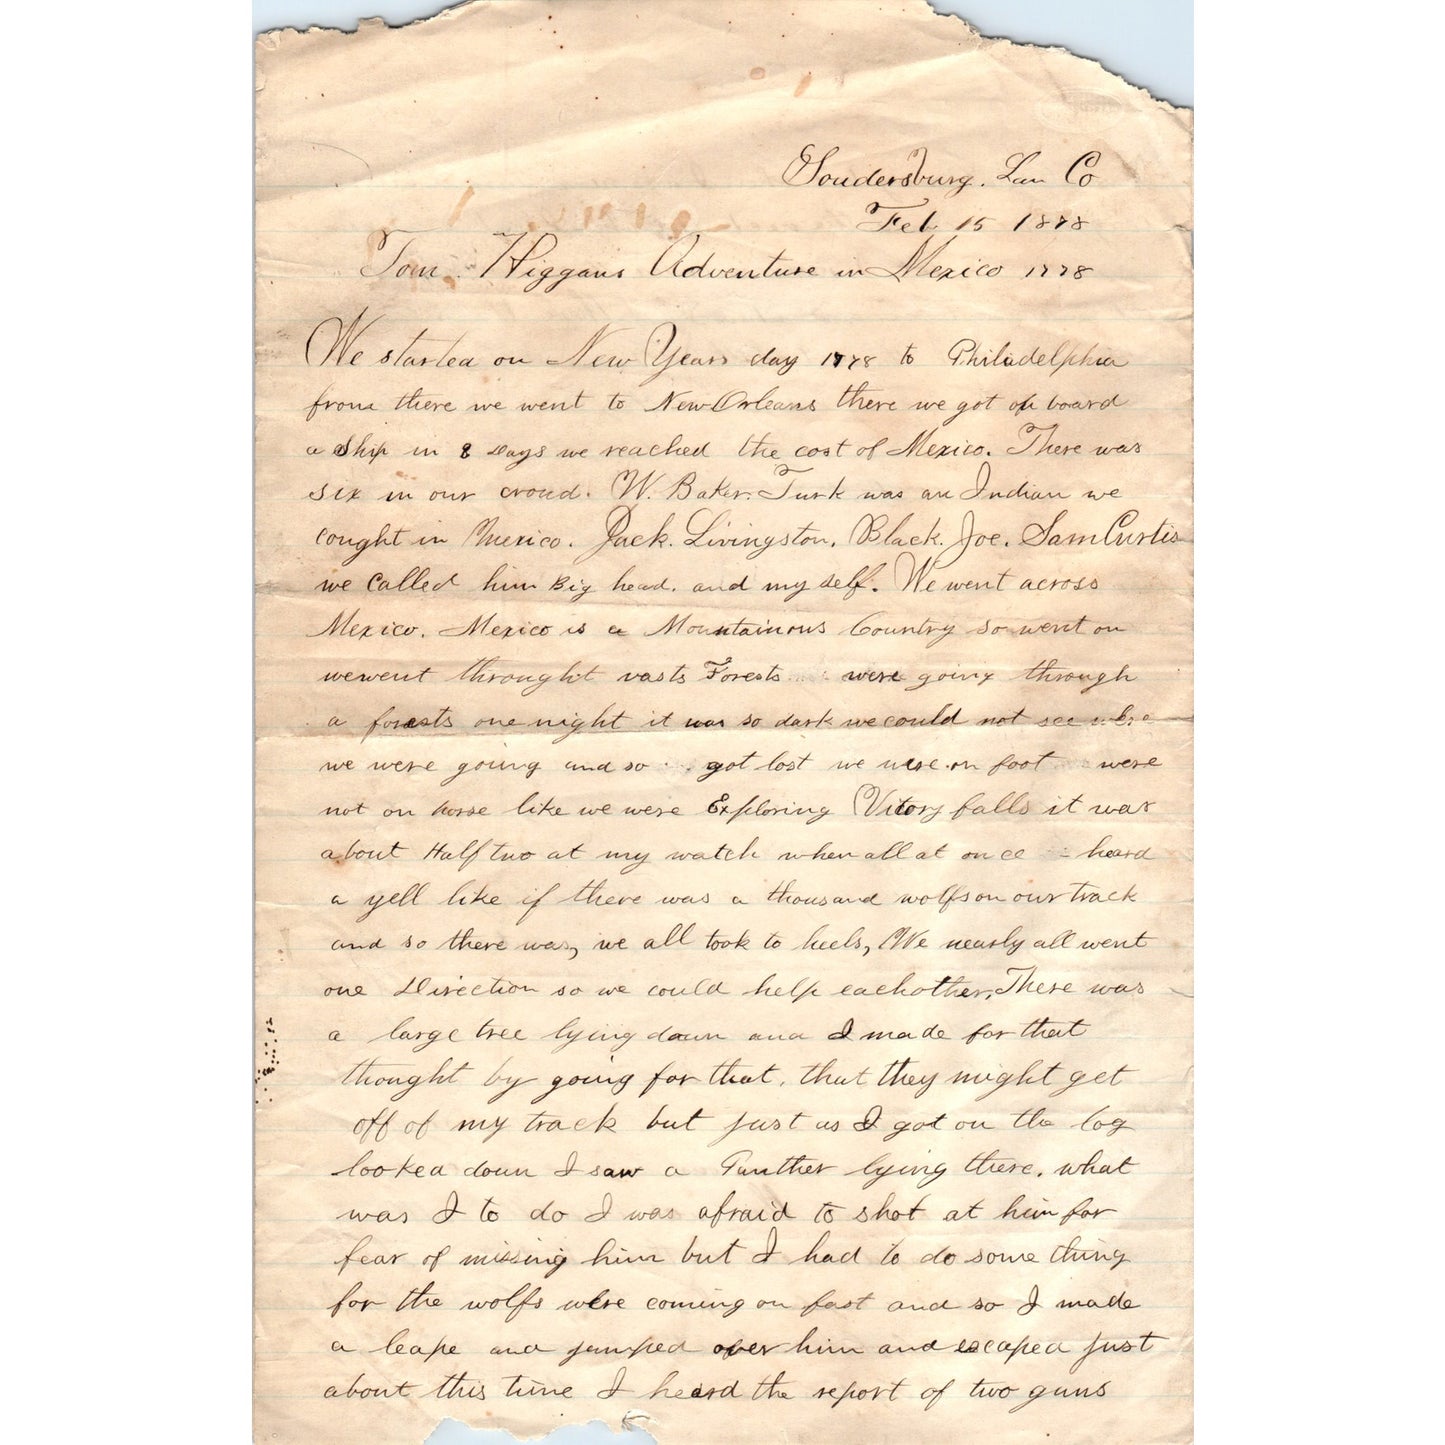 Soudersburg. Lan Co
Feb 15 1878
Tom Higgans Adventure in Mexico 1778
We started on New Years day 1778 to Philadelphia
from there we went to New Orleans there we got on board
a ship in 8 Days we reached the cost of Mexico. There was
six in our croud. W. Baker. Turk was an Indian we
cought in Mexico. Jack. Livingston. Black. Joe. Sam Curtis
we called him Big head. and my self. We went across
Mexico. Mexico is a Mountainous Country so went on
we went throught vasts Forests were going through
a forests one night it was so dark we could not see where
we were going and so got lost we were on foot were
not on horse like we were Exploring Vitory falls it was
about Half two at my watch when all at once heard
a yell like if there was a thousand wolfs on our track
and so there was, we all took to heels, We nearly all went
one Direction so we could help eachother. There was
a large tree lying down and I made for that
thought by going for that, that they might get
off of my track but just as I got on the log
looked down I saw a Panther lying there. what
was I to do I was afraid to shot at him for
fear of missing him but I had to do some thing
for the wolfs were coming on fast and so I made
a leape and jumped over him and escaped just
about this time I heard the report of two guns